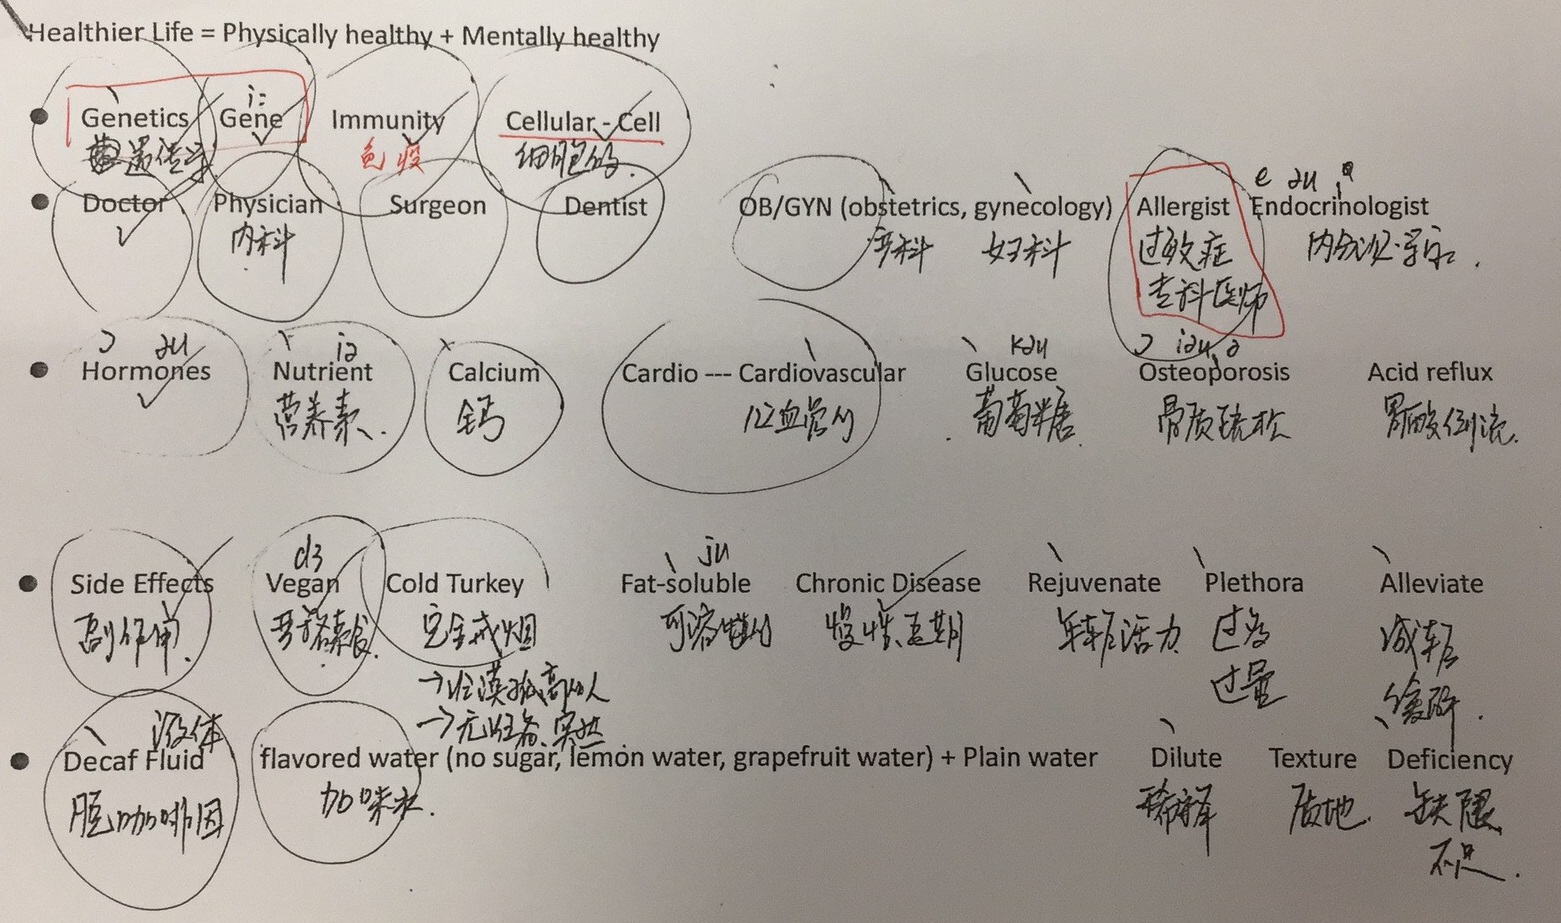 Healthier Life = Physically healthy + Mentally healthy
i:
• Genetics Gene Immunity Cellular - Cell
遗传学 免疫 细胞的.
e əu
• Doctor Physician Surgeon Dentist OB/GYN (obstetrics, gynecology) Allergist Endocrinologist
内科 产科 妇科 过敏症 内分泌学家.
专科医师
ɔ əu iə kəu ɔ iəu ə
• Hormones Nutrient Calcium Cardio --- Cardiovascular Glucose Osteoporosis Acid reflux
营养素. 钙 心血管的 葡萄糖 骨质疏松 胃酸倒流.
dʒ ju
• Side Effects Vegan Cold Turkey Fat-soluble Chronic Disease Rejuvenate Plethora Alleviate
副作用. 严格素食. 完全戒烟 可溶性的 慢性、长期 年轻活力 过多 减轻
→冷漠孤高的人 过量 缓解.
→无准备、突然
液体
• Decaf Fluid flavored water (no sugar, lemon water, grapefruit water) + Plain water Dilute Texture Deficiency
脱咖啡因 加味水. 稀释 质地. 缺陷、
不足.